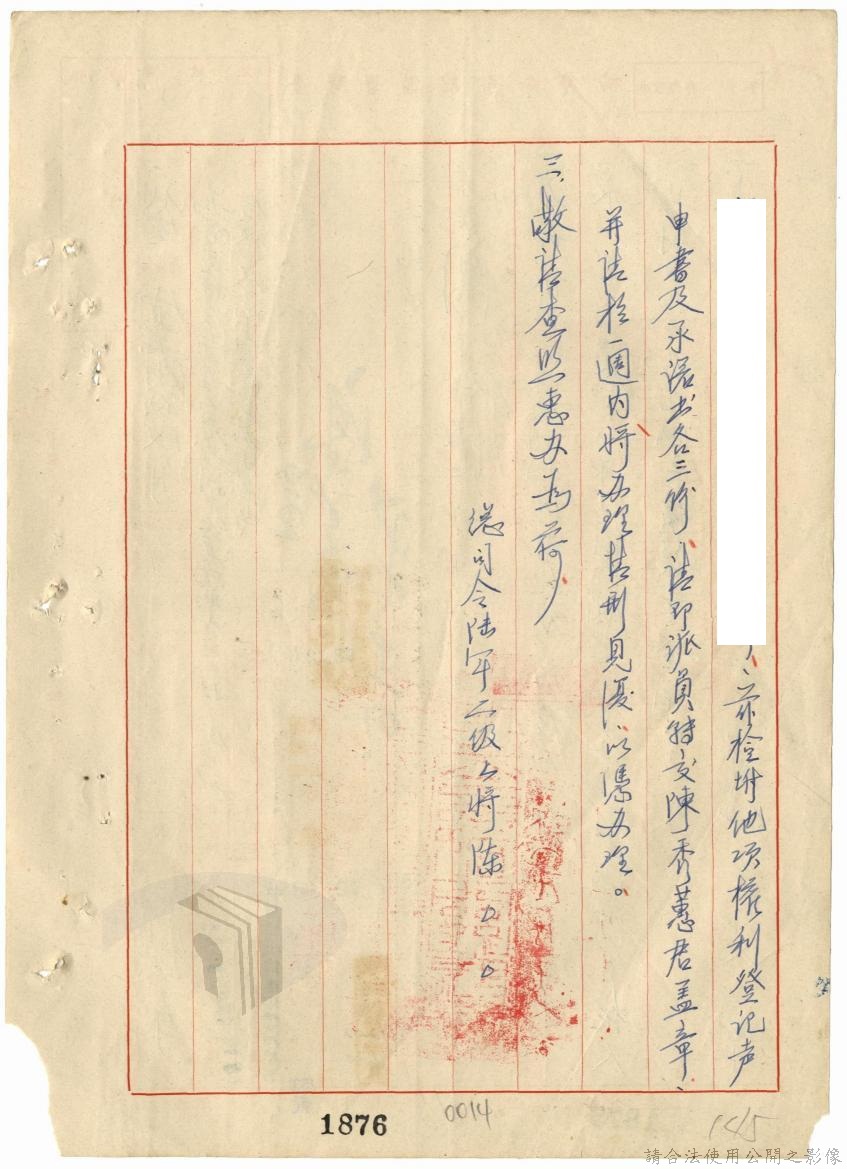 茲檢附他項權利登记声
申書及承诺书各三份，请即派員转交陳秀蕙君盖章、
并请於一週内将办理情形見復，以憑办理。
三、敬请查照惠办為荷
總司令陆军二级上将陈○○
1876
0014
14/5
請合法使用公開之影像